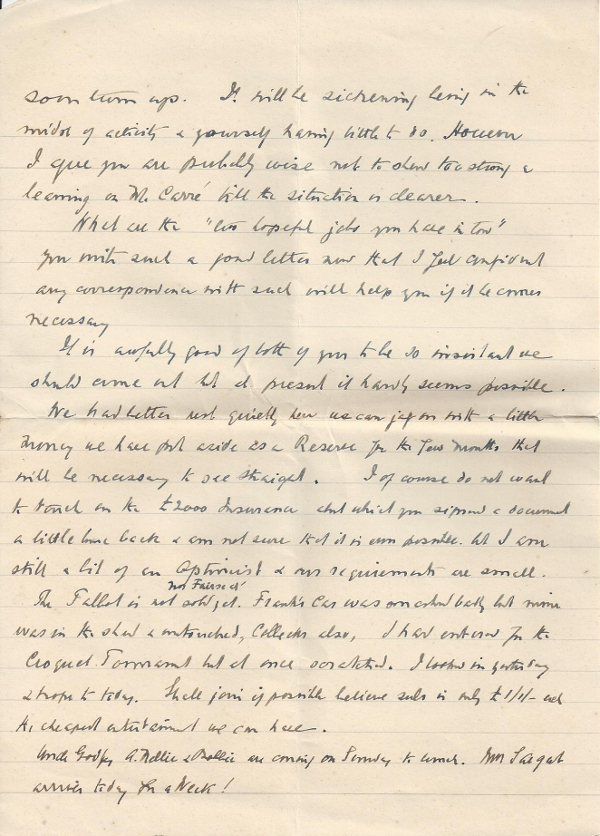 soon turn up. It will be sickening being in the
midst of activity & yourself having little to do. However
I guess you are probably wise not to show too strong a
leaning on Mr Carré till the situation is clearer.
What are the "two hopeful jobs you have in tow"
you write such a good letter now that I feel confident
any correspondence with such will help you if it becomes
necessary
It is awfully good of both of you to be so insistent we
should come out but at present it hardly seems possible.
We had better rest quietly here we can jog on with a little
money we have put aside as a Reserve for the few months that
will be necessary to see straight. I of course do not want
to touch on the £2000 Insurance about which you signed a document
a little time back & am not sure that it is even possible but I am
still a bit of an Optimist & our requirements are small.
The Talbot is not sold yet. Frank's Car was smashed badly but mine
was in the shed & untouched, Collecks also, I had entered for the
Croquet Tournament but at once scratched. I looked in yesterday
& hope to today. Shall join if possible believe subs is only £1/1/- each
the cheapest entertainment we can have.
Uncle Godfrey A. Nellie & Mollie are coming on Sunday to lunch. Mrs
arrives today for a Week!